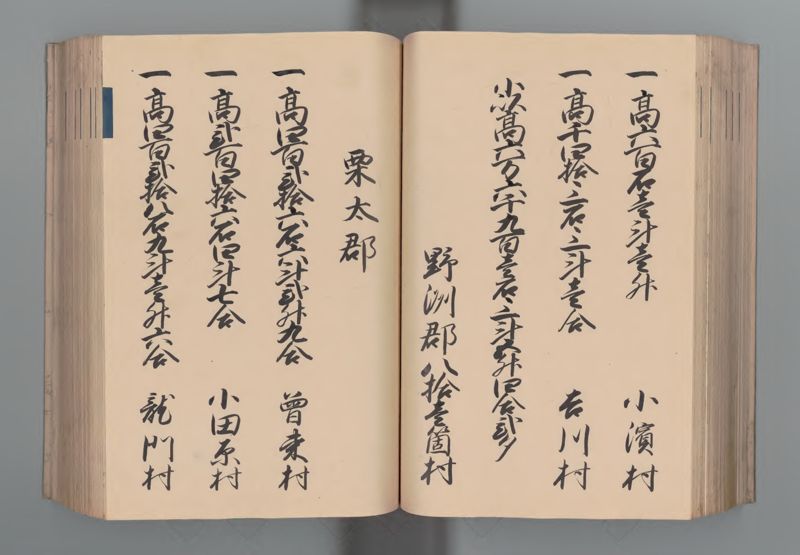 一高六百石壱斗壱升 小濱村
一高千四拾三石三斗壱合 吉川村
小以高六万六千九百壱石三斗五升四合弐夕
野洲郡八拾壱箇村
栗太郡
一高四百弐拾六石六斗弐升九合 曽束村
一高弐百四拾六石四斗七合 小田原村
一高四百弐拾八石九斗壱升六合 龍門村